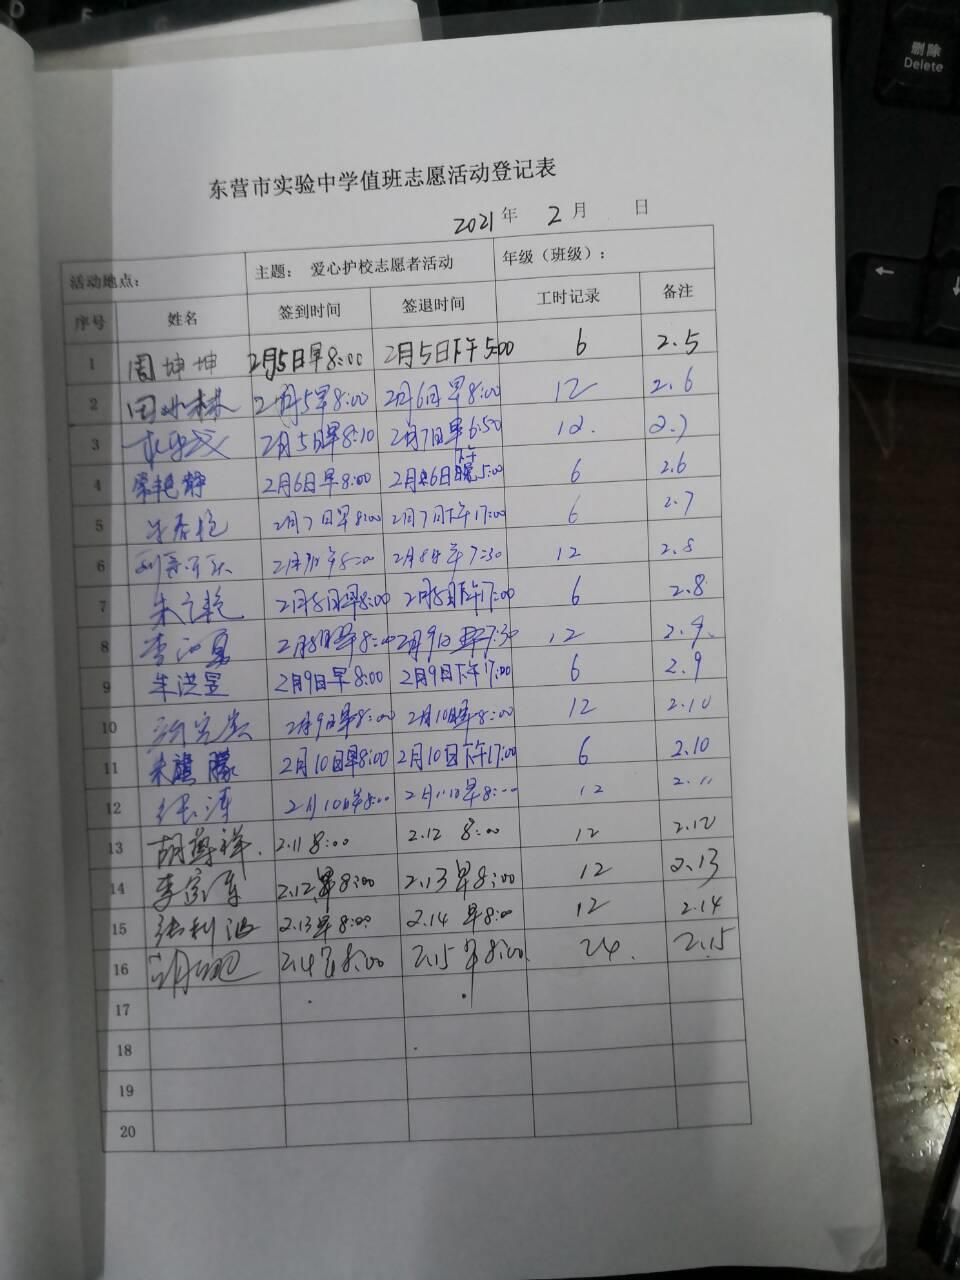 删除
Delete
东营市实验中学值班志愿活动登记表
2021年 2月 日
活动地点: 主题: 爱心护校志愿者活动 年级(班级):
序号 姓名 签到时间 签退时间 工时记录 备注
1 周坤坤 2月5日早8:00 2月5日下午5:00 6 2.5
2 2月5早8:00 2月6日早8:00 12 2.6
3 2月5日早8:10 2月7日早6:50 12. 2.7
4 荣艳静 2月6日早8:00 2月6日下午5:00 6 2.6
5 2月7日早8:00 2月7日下午17:00 6 2.7
6 8:00 2月8日早7:30 12 2.8
7 2月8日早8:00 2月8日下午17:00 6 2.8
8 2月8日早8:00 2月9日早7:30 12 2.9.
9 朱洪昱 2月9日早8:00 2月9日下午17:00 6 2.9
10 2月9日早8:00 2月10日早8:00 12 2.10
11 2月10日早8:00 2月10日下午17:00 6 2.10
12 2月10日早8:00 2月11日早8:00 12 2.11
13 胡尊祥. 2.11 8:00 2.12 8:00 12 2.12
14 2.12早8:00 2.13早8:00 12 2.13
15 张利波 2.13早8:00 2.14 早8:00 12 2.14
16 2.14早8:00 2.15早8:00. 24. 2.15
17
18
19
20